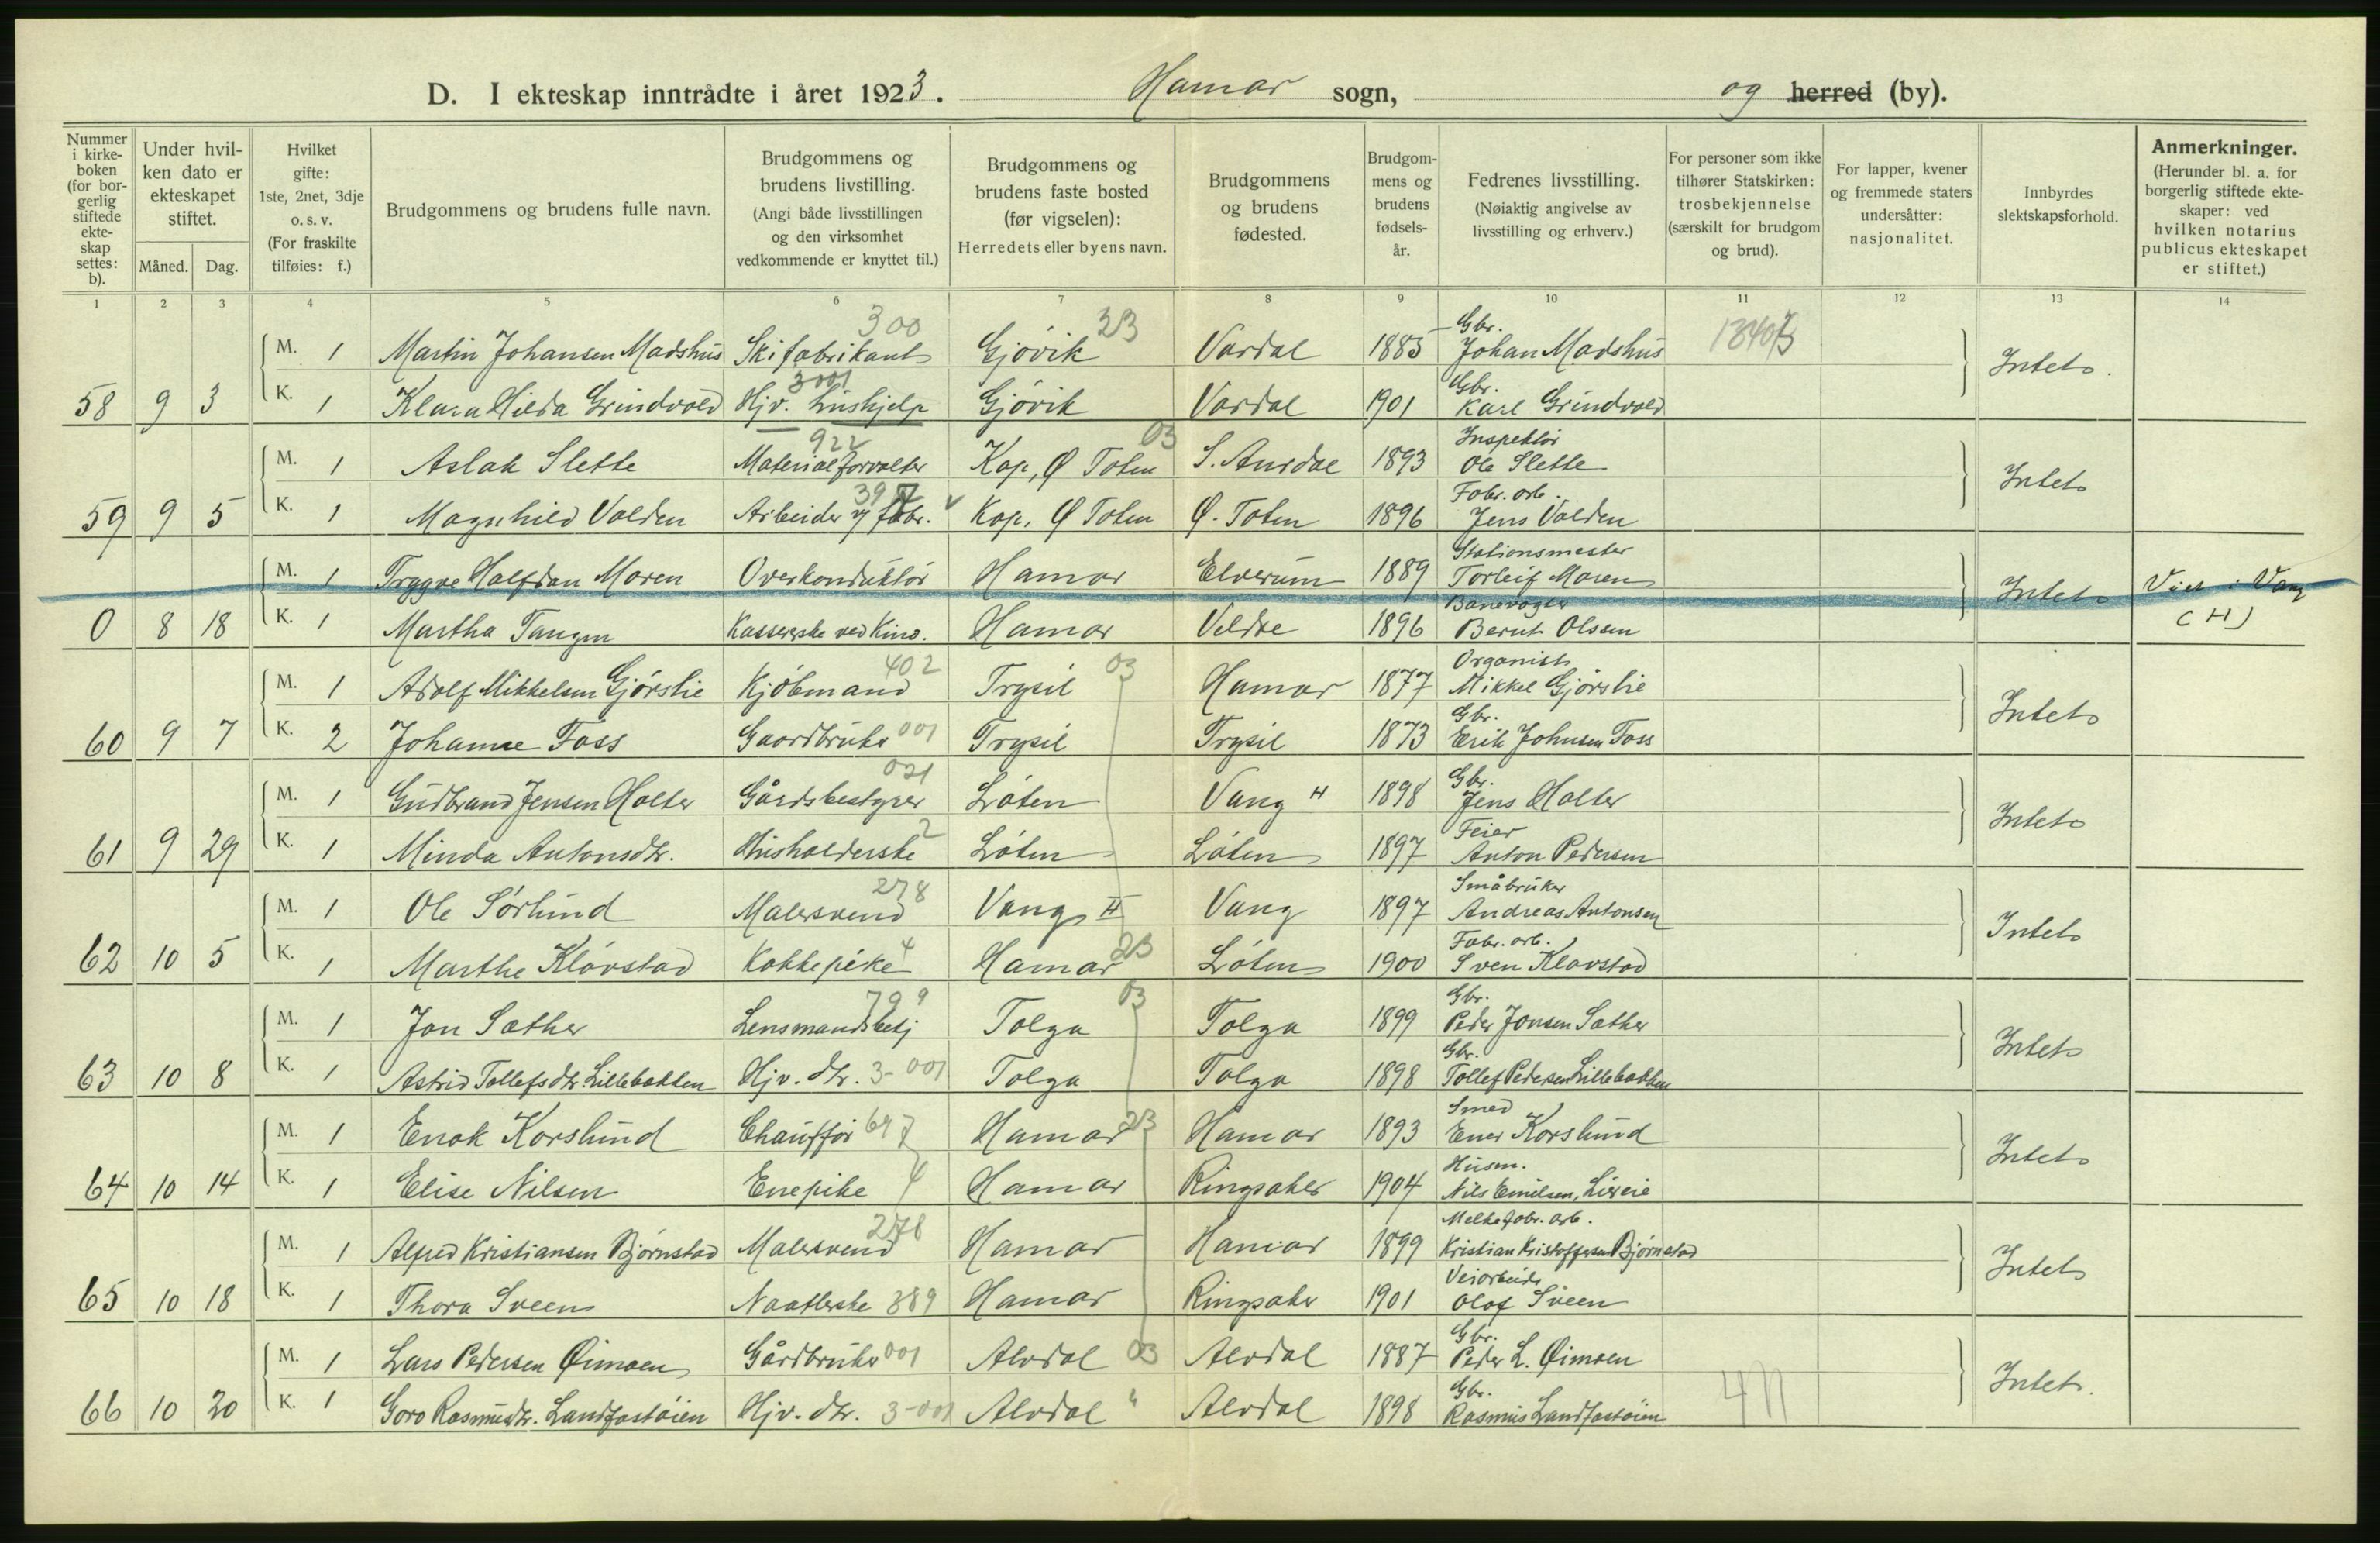 D. I ekteskap inntrådte i året 1923. Hamar sogn, og herred (by).
Nummer i kirke-boken (for bor-gerlig stiftede ekte-skap settes: b).
Under hvil-ken dato er ekteskapet stiftet.
Måned. Dag.
Hvilket gifte: 1ste, 2net, 3dje o. s. v. (For fraskilte tilføies: f.)
Brudgommens og brudens fulle navn.
Brudgommens og brudens livstilling. (Angi både livsstillingen og den virksomhet vedkommende er knyttet til.)
Brudgommens og brudens faste bosted (før vigselen): Herredets eller byens navn.
Brudgommens og brudens fødested.
Brudgom-mens og brudens fødsels-år.
Fedrenes livsstilling. (Nøiaktig angivelse av livsstilling og erhverv.)
For personer som ikke tilhører Statskirken: trosbekjennelse (særskilt for brudgom og brud).
For lapper, kvener og fremmede staters undersåtter: nasjonalitet.
Innbyrdes slektskapsforhold.
Anmerkninger. (Herunder bl. a. for borgerlig stiftede ekte-skaper: ved hvilken notarius publicus ekteskapet er stiftet.)
1 2 3 4 5 6 7 8 9 10 11 12 13 14
300 23 Gbr.
M. 1 Martin Johansen Madshus Skifabrikant Gjövik Vardal 1885 Johan Madshus Intet.
3001 Gbr.
58 9 3 K. 1 Klara Hilda Grindvold Hjv. hushjelp Gjövik Vardal 1901 Karl Grindvold
922 03 Inspektör
M. 1 Aslak Slette Materialforvalter Kap, Ø Toten S. Aurdal 1893 Ole Slette Intet
Fabr. arb.
59 9 5 K. 1 Magnhild Valden Arbeider v/ fabr. Kap, Ø Toten Ø. Toten 1896 Jens Valden
Stationsmester
M. 1 Tryggve Halfdan Moren Overkonduktör Hamar Elverum 1889 Torleif Moren Intet Viet i Vang
Banevogter
0 8 18 K. 1 Martha Tangen Kassererske ved Kino. Hamar Veldre 1896 Bernt Olssen (H)
402 03 Organist
M. 1 Adolf Mikkelsen Gjörslie Kjöbmand Trysil Hamar 1877 Mikkel Gjörslie Intet
Gbr.
60 9 7 K. 2 Johanne Foss Gaardbruker 001 Trysil Trysil 1873 Erik Johnsen Foss
021 Gbr.
M. 1 Gudbrand Jensen Holter Gårdsbestyrer Löten Vang H 1898 Jens Holter Intet
2 Feier
61 9 29 K. 1 Minda Antonsdtr. Husholderske Löten Löten 1897 Anton Pedersen
278 Småbruker
M. 1 Ole Sörlund Malersvend Vang H Vang 1897 Andreas Antonsen Intet
4 23 Fabr. arb.
62 10 5 K. 1 Marthe Klövstad Kokkepike Hamar Löten 1900 Sven Klövstad
799 03 Gbr.
M. 1 Jon Sæther Lensmandsbetj Tolga Tolga 1899 Peder Jonsen Sæther Intet
Gbr.
63 10 8 K. 1 Astrid Tollefsdtr. Lillebakken Hjv. dtr. 3-001 Tolga Tolga 1898 Tollef Pedersen Lillebakken
23 Smed
M. 1 Enok Korslund Chauffør 647 Hamar Hamar 1893 Korslund Intet
Husm.
64 10 14 K. 1 Elise Nilsen Enepike 4 Hamar Ringsaker 1904 Nils Emilsen,
278 Melkefabr. arb.
M. 1 Alfred Kristiansen Bjørnstad Malersvend Hamar Hamar 1899 Kristian Kristoffersen Bjørnstad Intet
Veiarbeider
65 10 18 K. 1 Thora Sveen Naatlerske 389 Hamar Ringsaker 1901 Olaf Sveen
Gbr.
M. 1 Lars Pedersen Øimoen Gårdbruker 001 Alvdal 03 Alvdal 1887 Peder L. Øimoen Intet.
Gbr.
66 10 20 K. 1 Goro Rasmusdtr. Landfastöien Hjv. dtr. 3-001 Alvdal " Alvdal 1898 Rasmus Landfastöien